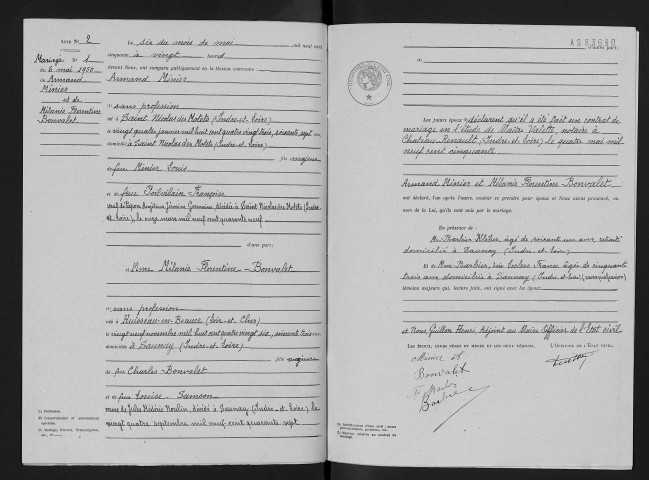 Acte N° 2
Mariage N° 1
du 6 mai 1950
de Armand
Minier
et de
Mélanie Florentine
Bonvalet
Le six du mois de mai mil neuf cent
cinquante à vingt heures
devant Nous, ont comparu publiquement en la Maison commune :
Armand Minier
(1) sans profession
né à Saint Nicolas des Motets (Indre-et-Loire)
le vingt quatre janvier mil huit cent quatre vingt trois, soixante sept ans
domicilié à Saint Nicolas des Motets (Indre-et-Loire)
fils majeur
de feu Minier Louis
et de feue Poilvilain Françoise
veuf de Germaine décédée à Saint Nicolas des Motets (Indre-
et-Loire), le onze mars mil neuf cent quarante neuf
d'une part ;
et Mme Mélanie Florentine Bonvalet
(1) sans profession
née à Huisseau-en-Beauce (Loir-et-Cher)
le vingt neuf novembre mil huit cent quatre vingt six, soixante trois ans
domiciliée à Saunay (Indre-et-Loire)
fille majeure
de feu Charles Bonvalet
et de feue Louise Samson
veuve de Jules Moulin, décédé à Saunay (Indre-et-Loire), le
vingt quatre septembre mil neuf cent quarante sept
(1) Profession.
A283680
d'autre part ;
Les futurs époux déclarent qu'il a été fait un contrat de
mariage en l'étude de Maître Valette, notaire à
Château-Renault, (Indre-et-Loire) le quatre mai mil
neuf cent cinquante
Armand Minier et Mélanie Florentine Bonvalet
ont déclaré, l'un après l'autre, vouloir se prendre pour époux et Nous avons prononcé, au
nom de la Loi, qu'ils sont unis par le mariage.
En présence de :
M. Barbier Kléber, âgé de soixante un ans, retraité
domicilié à Saunay (Indre-et-Loire)
et de Mme Barbier, née Leclerc France âgée de cinquante
trois ans domiciliée à Saunay (Indre-et-Loire)
témoins majeurs qui, lecture faite, ont signé avec les époux
et Nous Guillon Henri, Adjoint au Maire Officier de l'état civil
L'Officier de l'État civil,
Minier
Bonvalet
Barbier